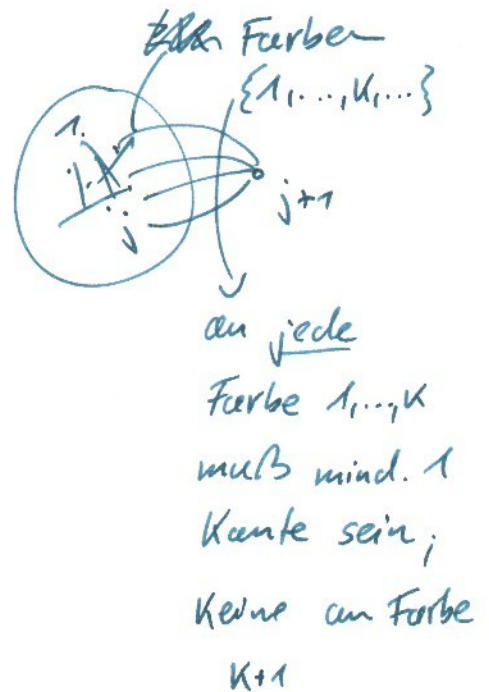 Farben
{1,...,k,...}
1.
j
j+1
an jede
Farbe 1,..,k
muß mind. 1
Kante sein;
keine an Farbe
k+1